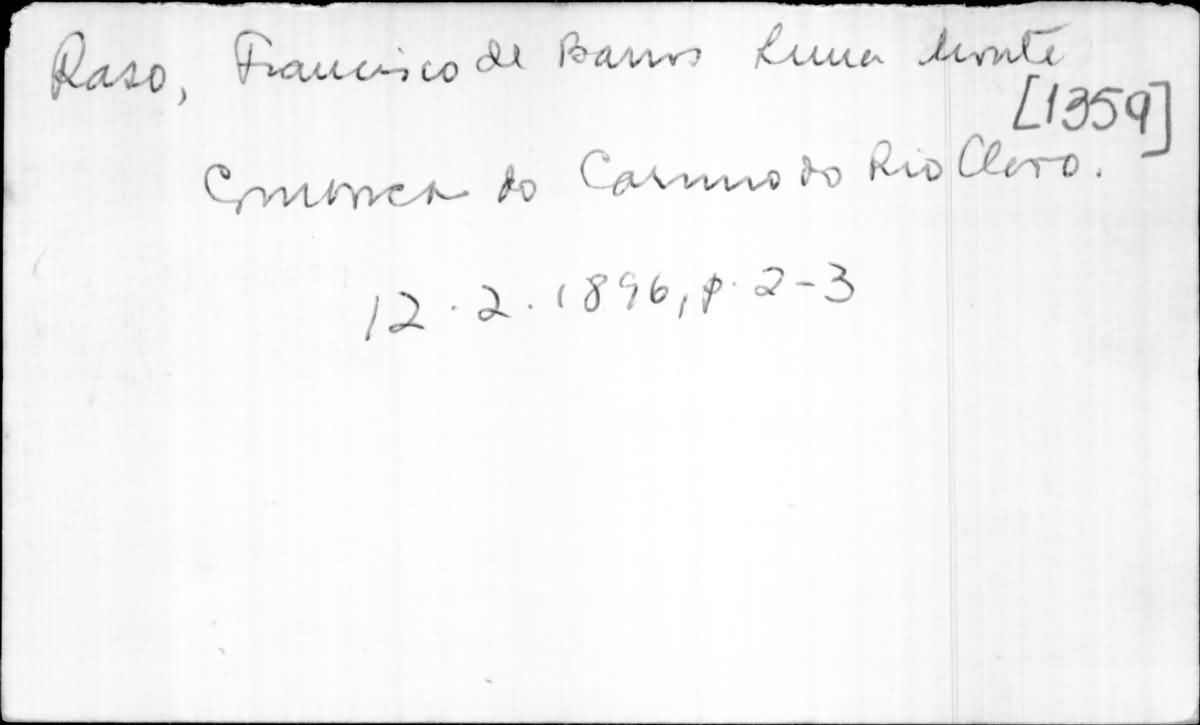 Raso, Francisco de Barros Lima Monte
[1359]
Comarca do Carmo do Rio Claro.
12.2.1896, p. 2-3